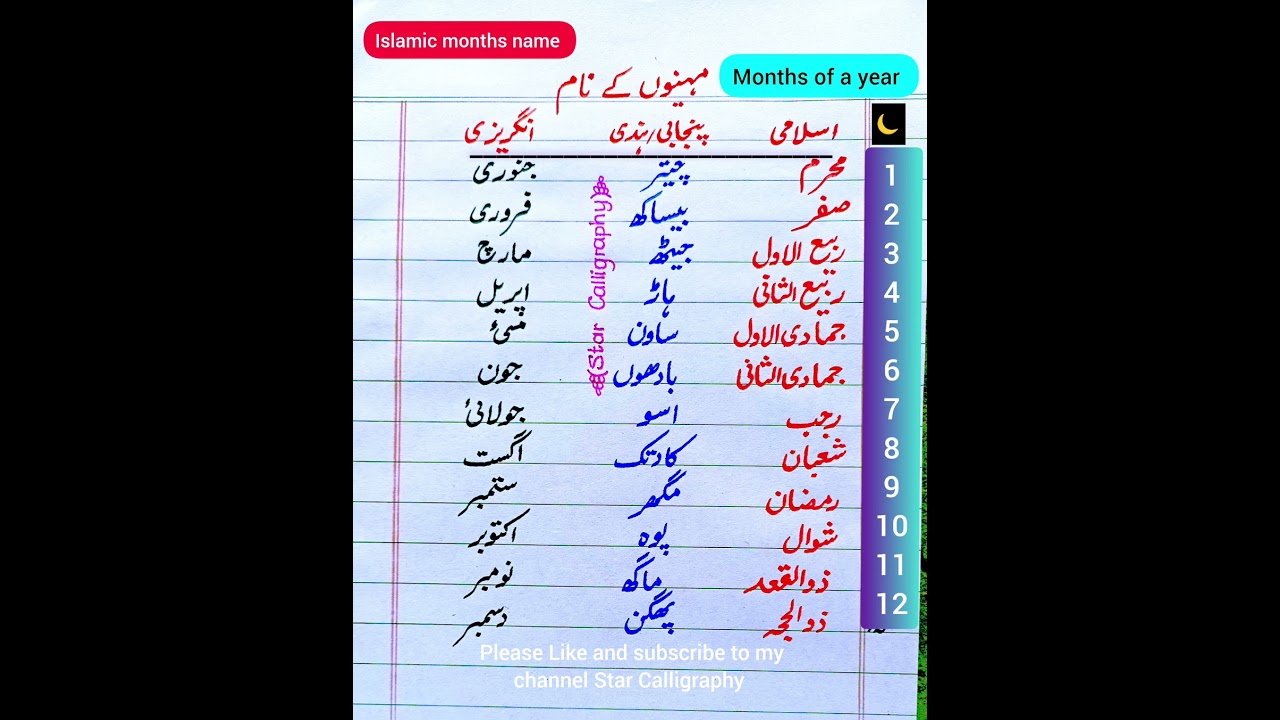 Islamic months name
Months of a year
مہینوں کے نام
اسلامی پنجابی/ہندی انگریزی
1 محرم چیتر جنوری
2 صفر بیساکھ فروری
3 ربیع الاول جیٹھ مارچ
4 ربیع الثانی ہاڑ اپریل
5 جمادی الاول ساون مئی
6 جمادی الثانی بادھوں جون
7 رجب اسو جولائی
8 شعبان کادتک اگست
9 رمضان مگھر ستمبر
10 شوال پوہ اکتوبر
11 ذوالقعد ماگھ نومبر
12 ذوالحجہ پھگن دسمبر
(Star Calligraphy)
Please Like and subscribe to my
channel Star Calligraphy